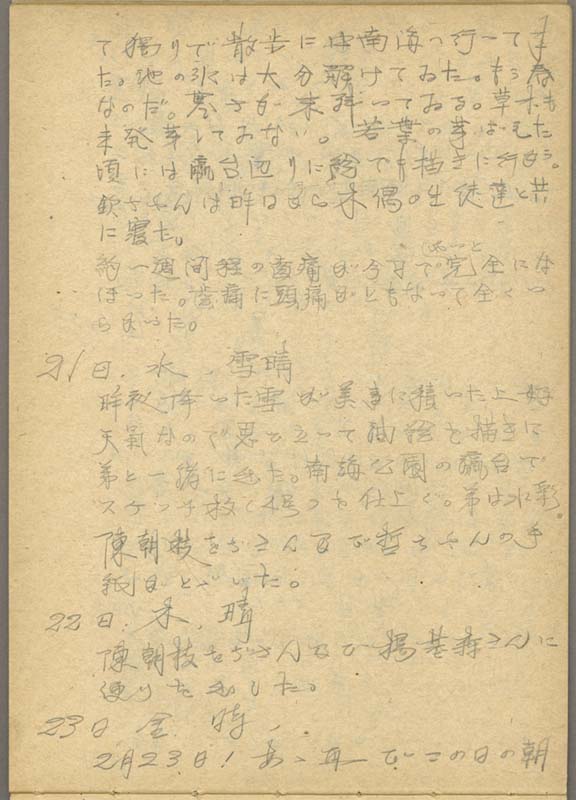 て獨りで散歩に中南海へ行って
た。池の氷は大分解けてゐた。もう春
なのだ。寒さが未だ残ってゐる。草木も
未だ発芽してゐない。若葉の芽ばえた
頃には瀛台辺りに絵でも描きに行かう。
さんは昨日から木偶の生徒達と共
に寝た。
約一週間程の歯痛が今日で完全にな
ほった。歯痛に頭痛がともなって全くつ
らかった。
21日. 水, 雪晴
昨夜降った雪が美事に積った上好
天氣なので思ひ立って油絵を描きに
弟と一緒に出た。南海公園の瀛台で
スケッチ板を仕上ぐ。弟は水彩。
陳朝枝をぢさん及び哲ちゃんの手
紙がとどいた。
22日. 木, 晴
陳朝枝をぢさん及び楊基森さんに
便りを出した。
23日 金. 晴,
2月23日! あゝ再びこの日の朝